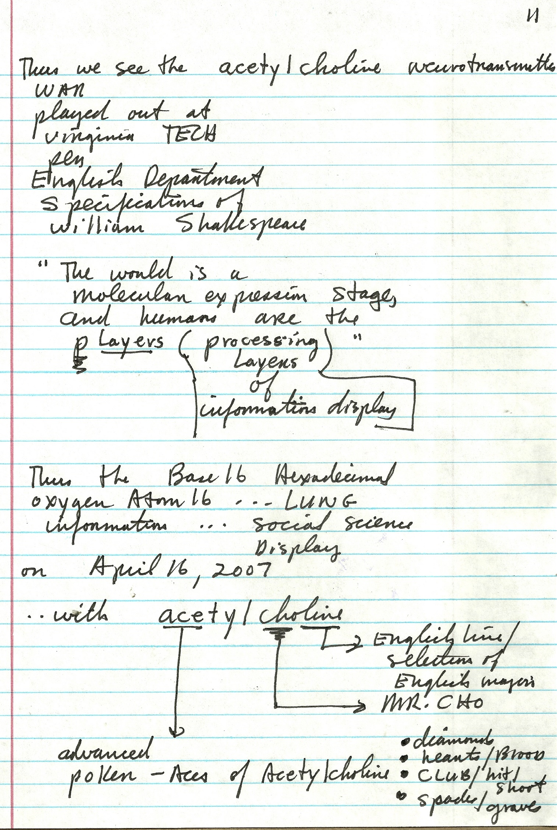 11
Thus we see the acetyl choline neurotransmitte
WAR
played out at
virginia TECH
per
English Department
Specifications of
William Shakespeare
" The world is a
molecular expression stage,
and humans are the
p Layers ( processing ) "
Layers
of
information display
Thus the Base 16 Hexadecimal
oxygen Atom 16 ... LUNG
information ... social science
Display
on April 16, 2007
.. with acetyl choline
English line/
selection of
English majors
MR. CHO
advanced
poker - Aces of Acetylcholine
• diamonds
• hearts/Blood
• CLUB/hit/
shoot
• spades/
graves